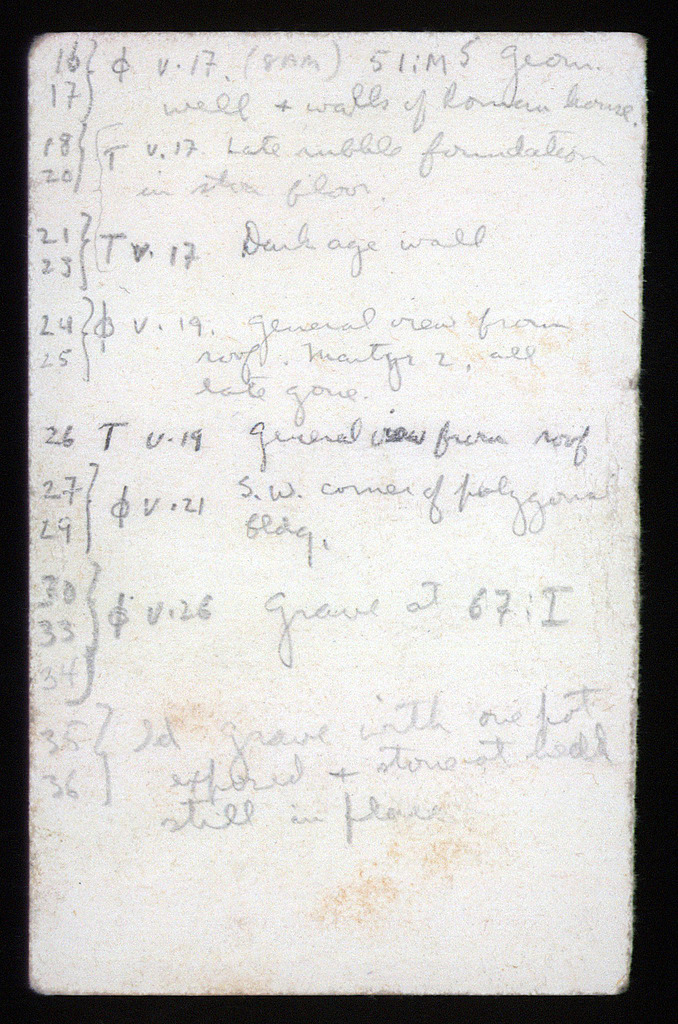 16 } φ V.17. (8AM) 51:MS Geom.
17 } well + walls of Roman house.
18 } T V.17 Late rubble foundation
20 } in stoa floor.
21 } T V.17 Dark age wall
23 }
24 } φ V.19. General view from
25 } roof. Martyr 2, all
late gone.
26 T V.19 General view from roof
27 } φ V.21 S.W. corner of polygonal
29 } bldg.
30 } φ V.26 Grave at 67:I
33 }
34 }
35 } Id grave with one pot
36 } exposed + stone at head
still in place